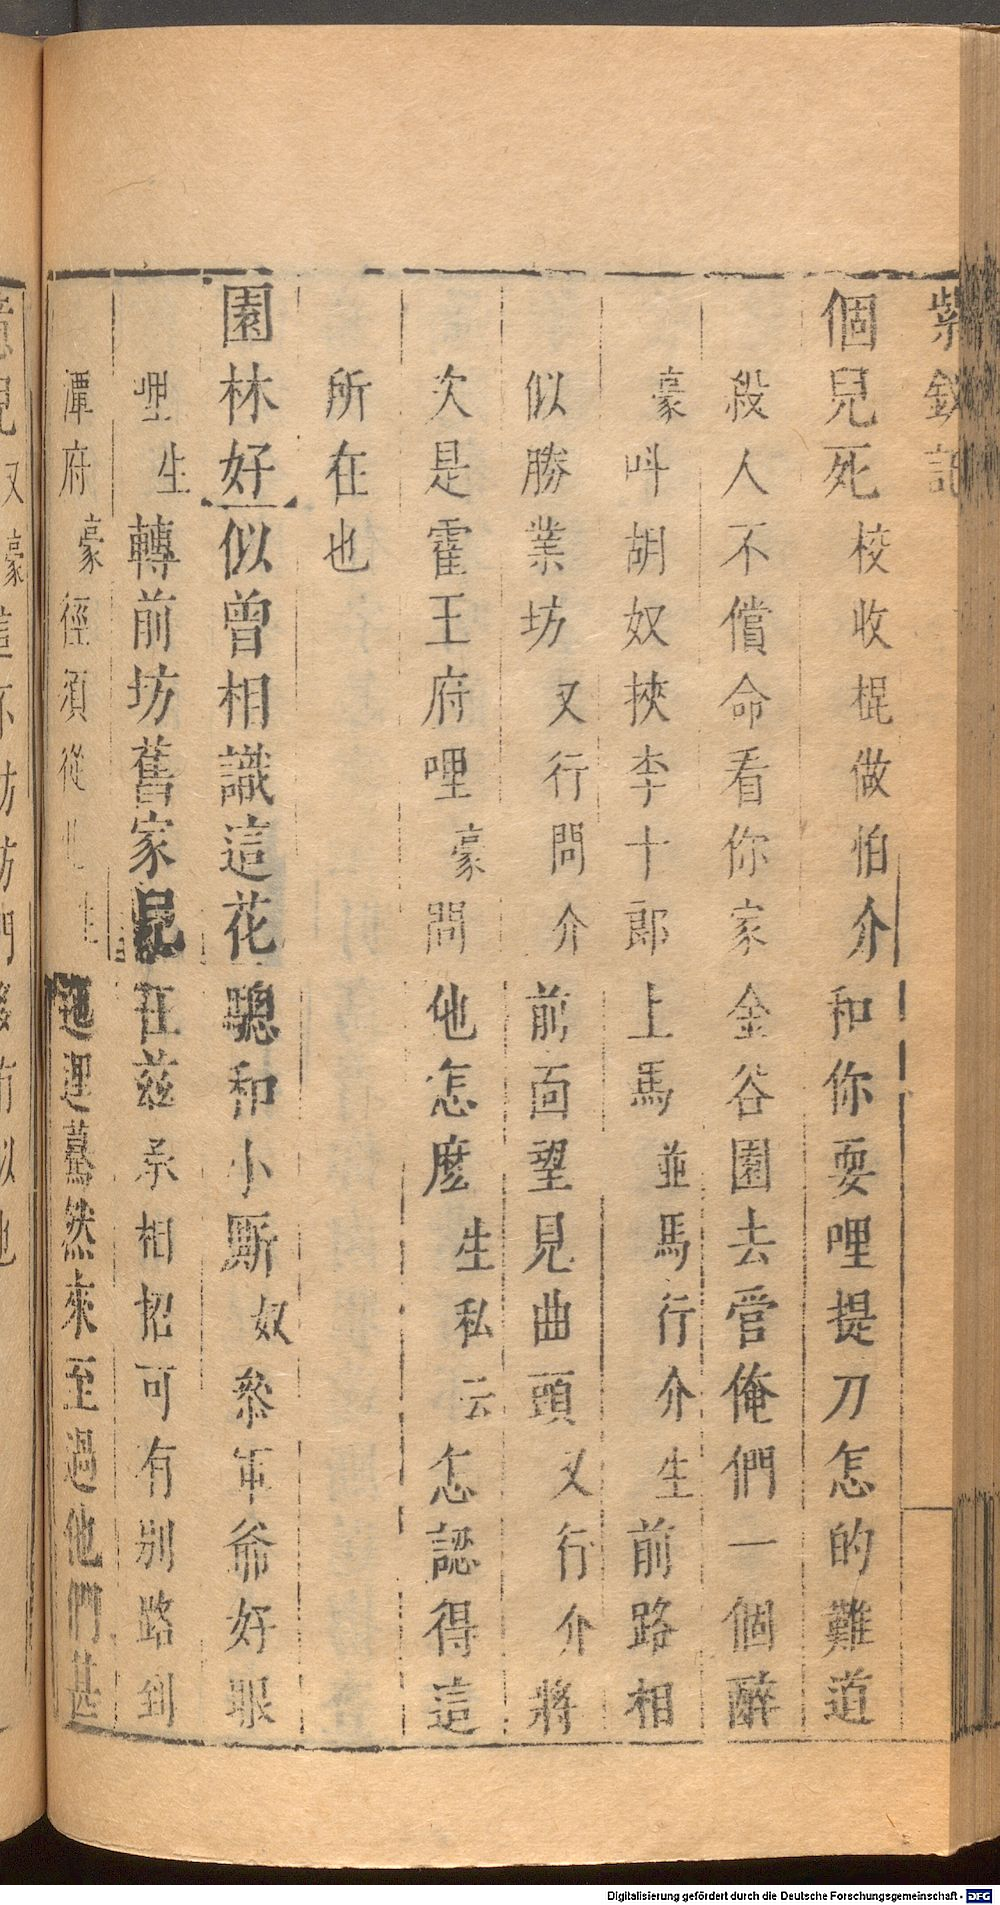 紫釵記
個兒死校收棍做怕介和你耍哩提刀怎的難道
殺人不償命看你家金谷園去管俺們一個醉
豪叫胡奴挾李十郎上馬並馬行介生前路相
似勝業坊又行問介前面望見曲頭又行介將
次是霍王府哩豪問他怎麽生私云怎認得這
所在也
園林好似曾相識這花驄和小厮奴叅軍爺好眼
哩生轉前坊舊家在兹承相招可有别路到
潭府豪徑須從生迤逗驀然來至過他們甚
Digitalisierung gefördert durch die Deutsche Forschungsgemeinschaft - DFG